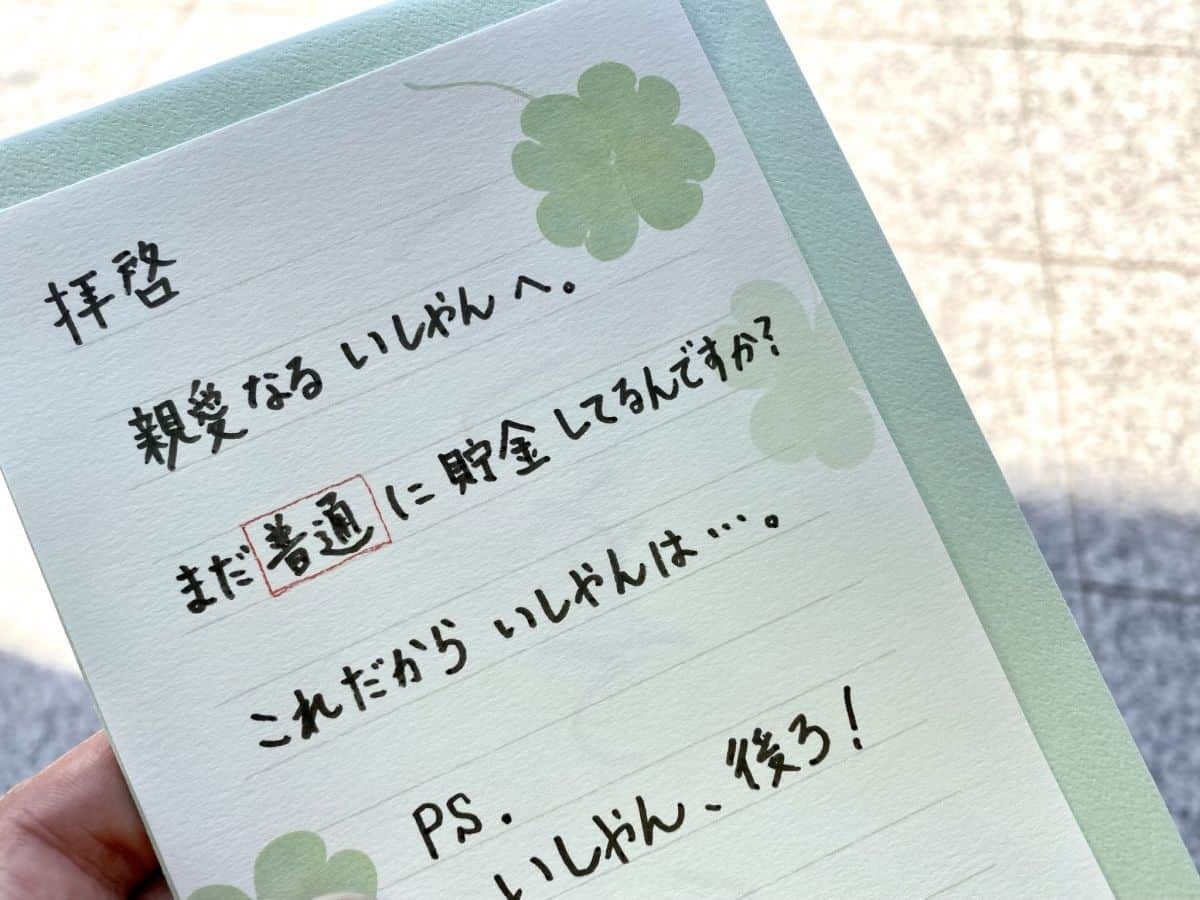 拝啓
親愛なる いしやんへ。
まだ普通に貯金してるんですか?
これだから いしやんは…。
PS.
いしやん、後ろ!